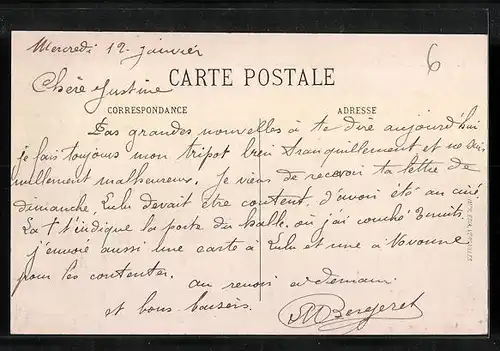 Mercredi 12 janvier
6
Chère Justine
CARTE POSTALE
CORRESPONDANCE
ADRESSE
Pas grandes nouvelles à te dire aujourd'hui
je fais toujours mon tripot bien tranquillement et ne suis
nullement malheureux. Je viens de recevoir ta lettre de
dimanche, Lulu devait être content d'avoir été au ciné.
La † t'indique la porte du hall où j'ai couché 3 nuits.
j'envoie aussi une carte à Lulu et une à Yvonne
pour les contenter.
au revoir à demain
et bons baisers.
M Bergeret